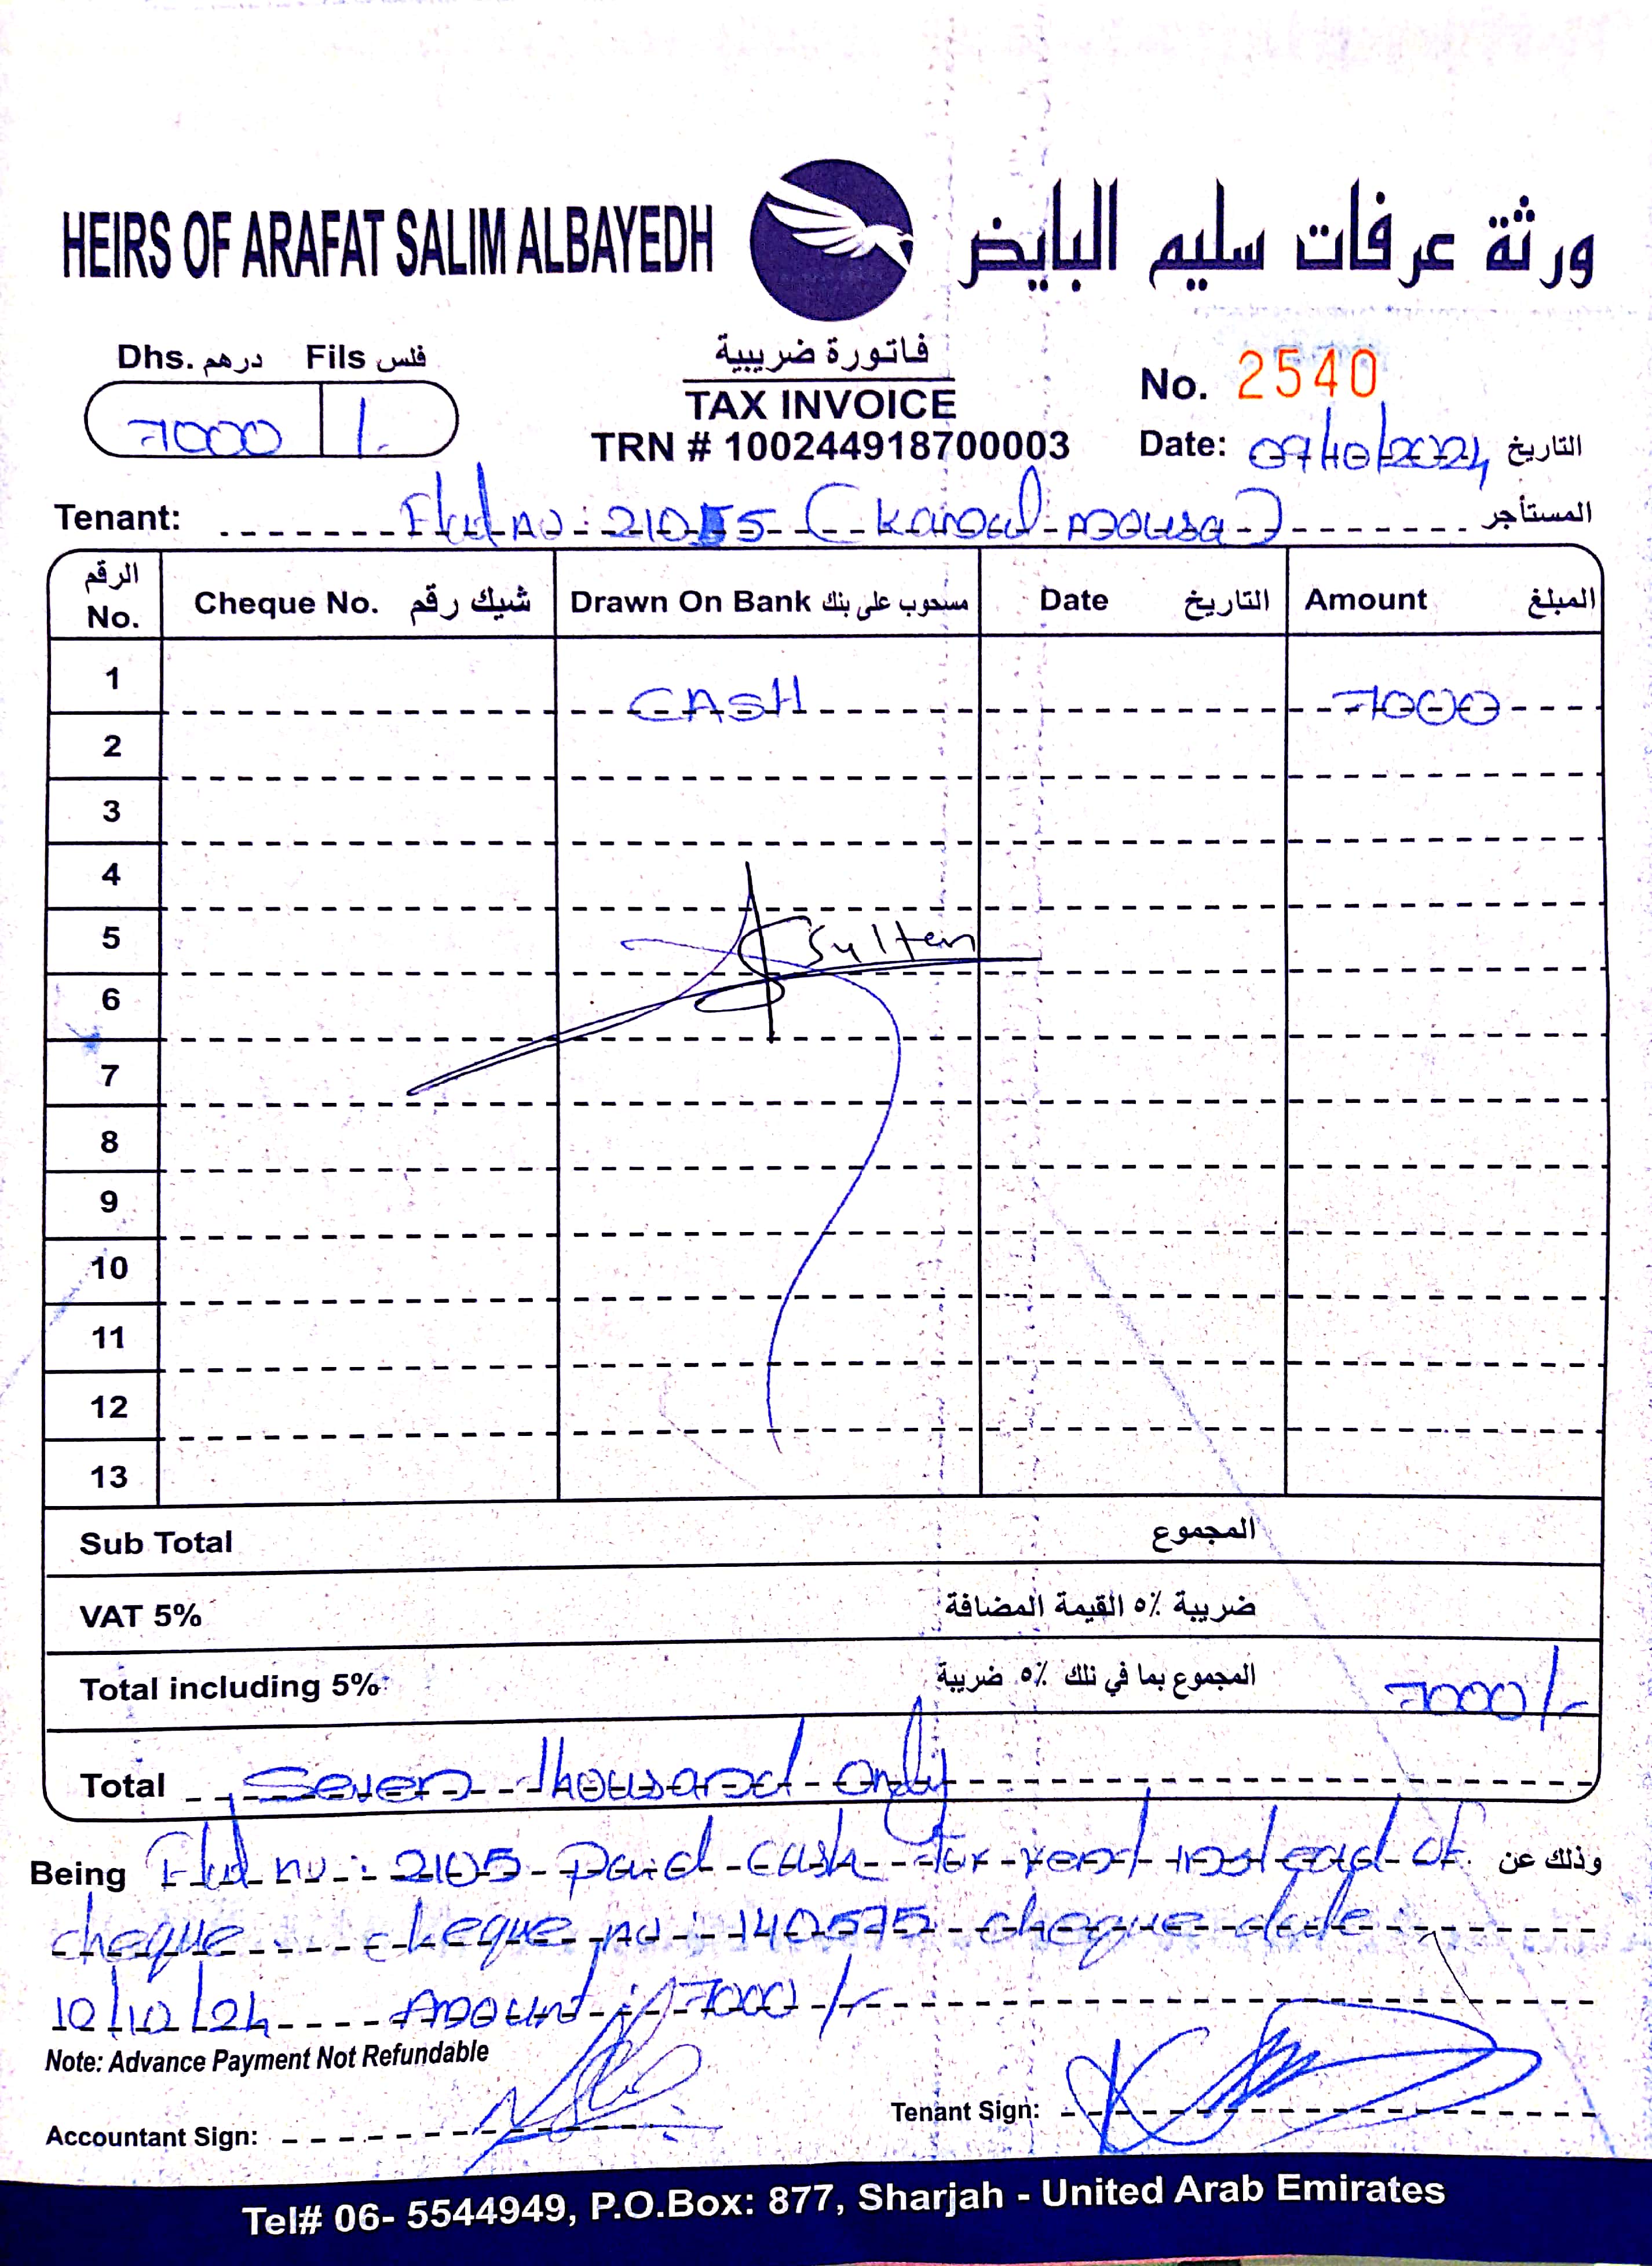 HEIRS OF ARAFAT SALIM ALBAYEDH ورثة عرفات سليم البايض
Dhs. درهم Fils فلس
7000 /-
فاتورة ضريبية
TAX INVOICE
TRN # 100244918700003
No. 2540
Date: 09/10/2024 التاريخ
Tenant: Flat no: 2105 (Kamal Mousa) المستأجر
الرقم No. Cheque No. شيك رقم Drawn On Bank مسحوب على بنك Date التاريخ Amount المبلغ
1 CASH 7000
2
3
4
5 Sultan
6
7
8
9
10
11
12
13
Sub Total المجموع
VAT 5% ضريبة ٥٪ القيمة المضافة
Total including 5% المجموع بما في ذلك ٥٪ ضريبة 7000/-
Total Seven thousand only
Being Flat no: 2105 paid cash for rent instead of وذلك عن
cheque cheque no: 140575 cheque date:
10/10/24 Amount: 7000/-
Note: Advance Payment Not Refundable
Accountant Sign: Tenant Sign:
Tel# 06- 5544949, P.O.Box: 877, Sharjah - United Arab Emirates